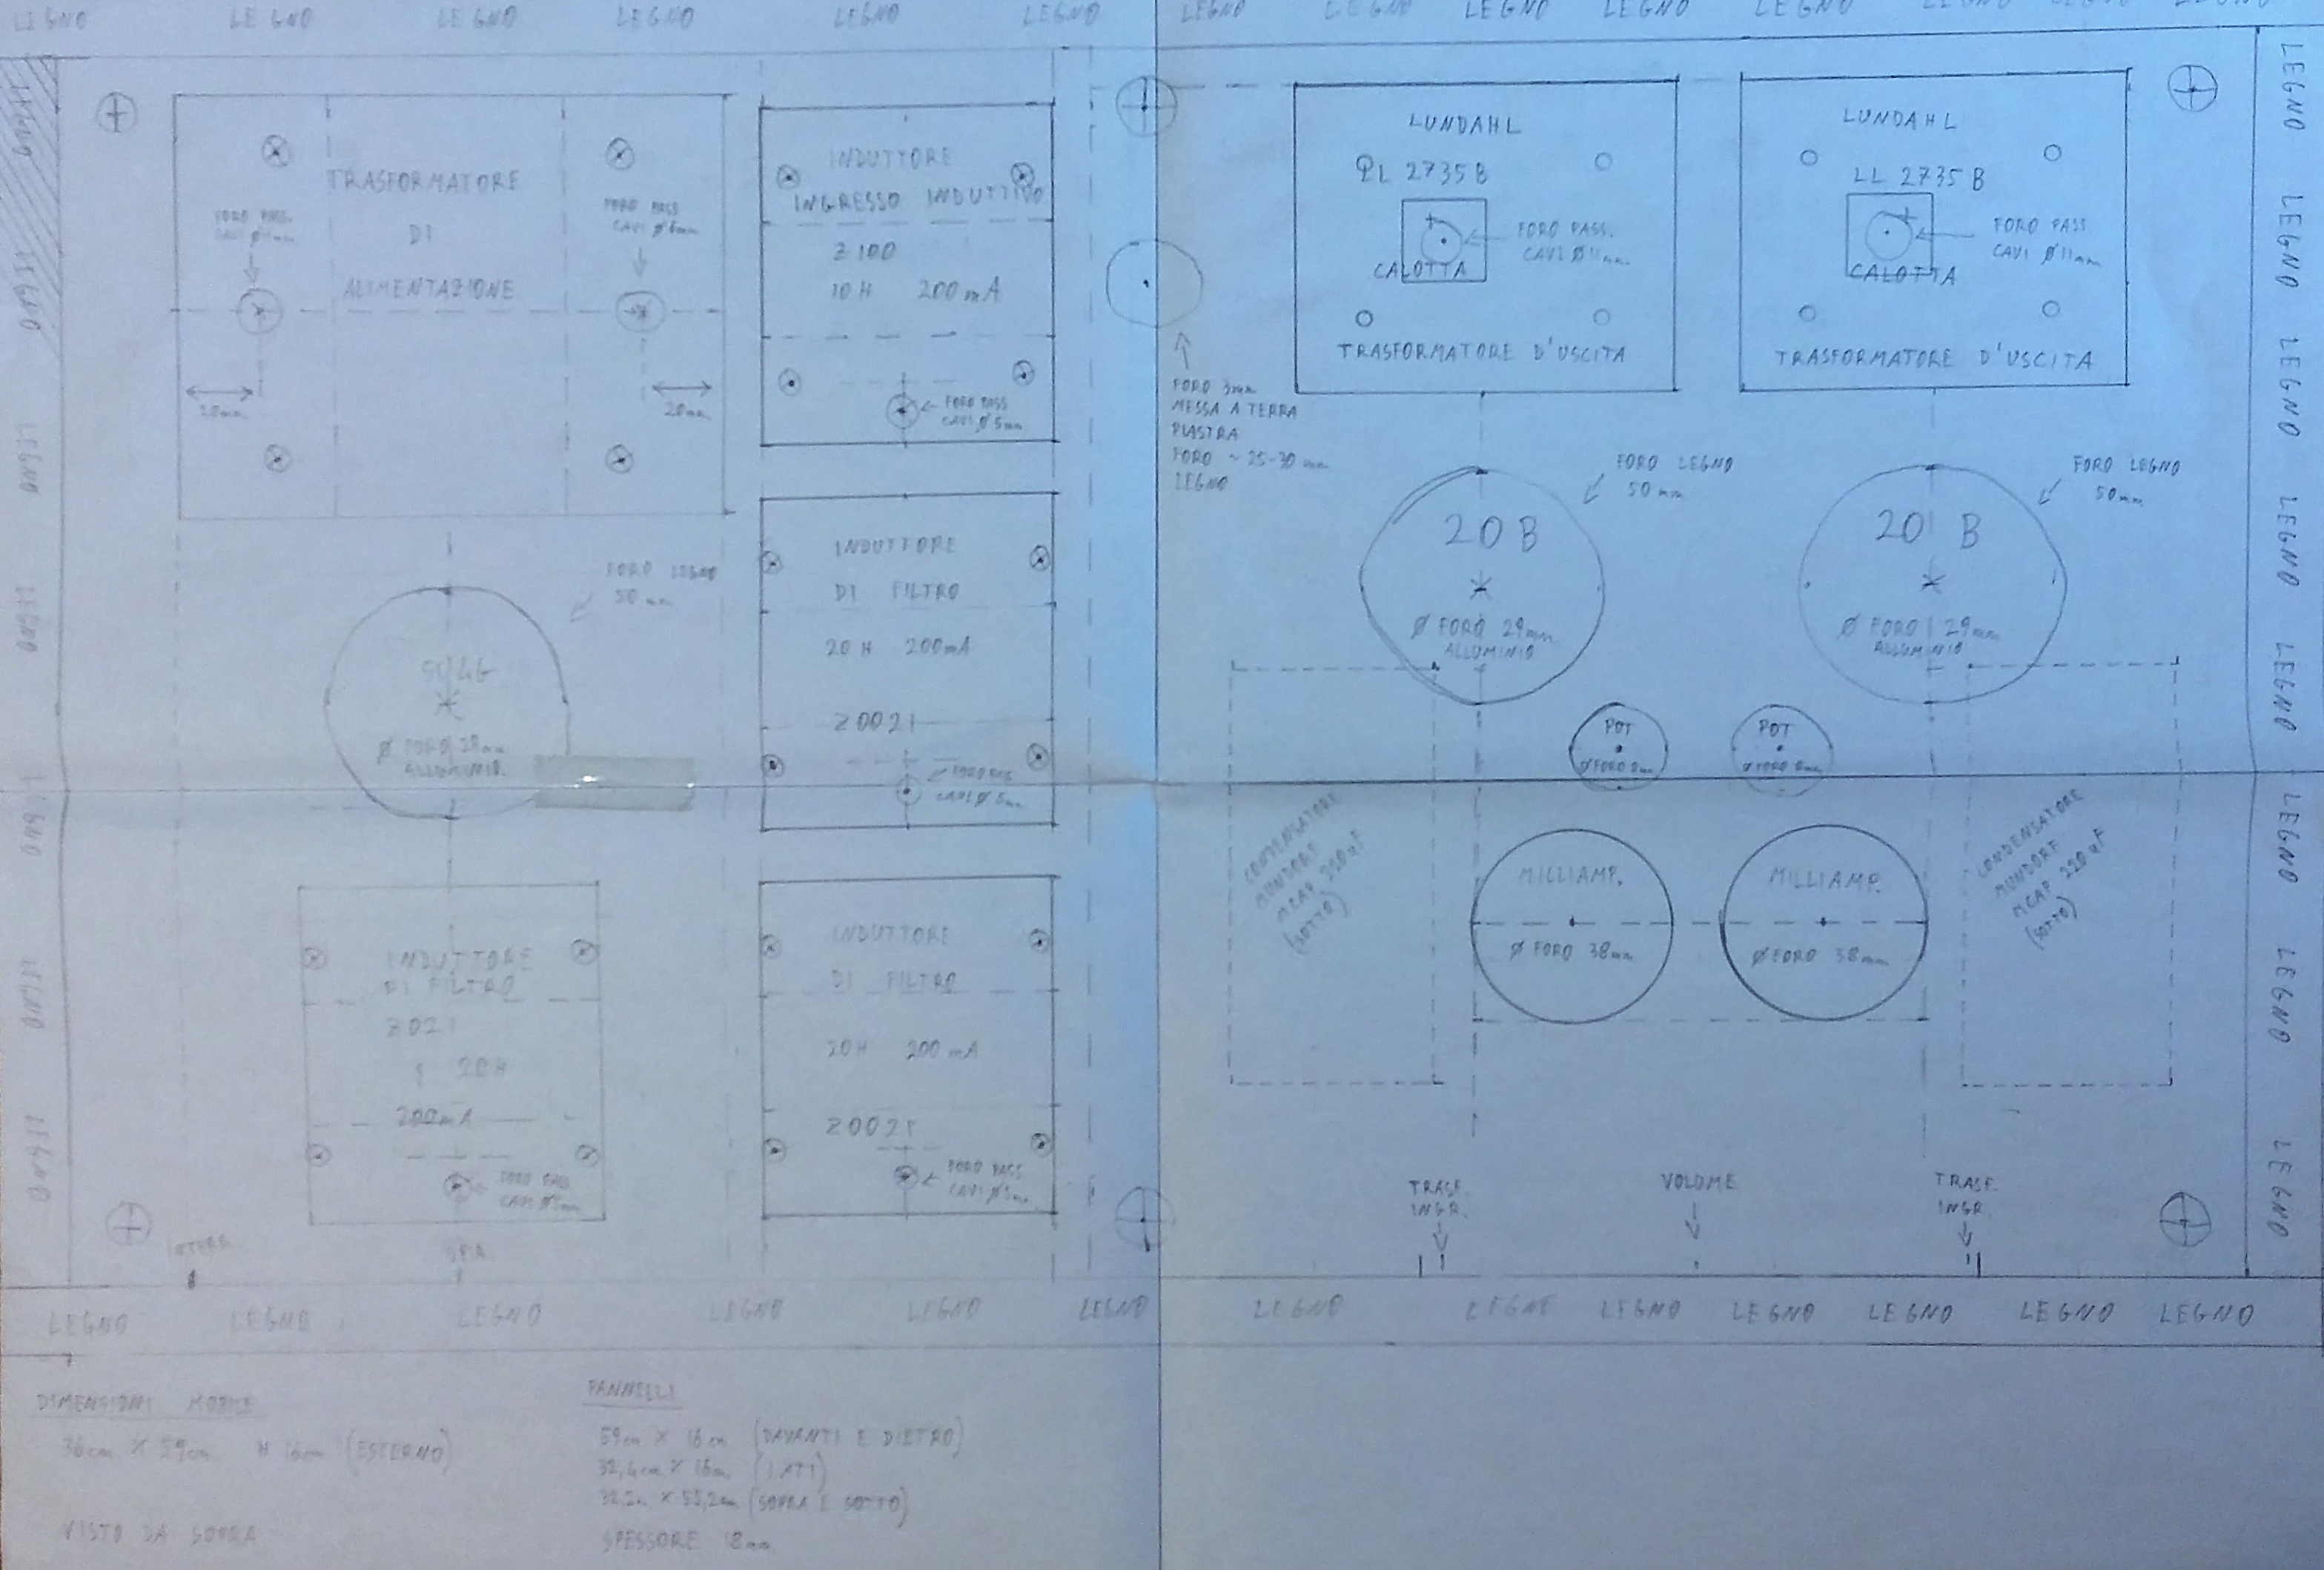 LEGNO LEGNO LEGNO LEGNO LEGNO LEGNO LEGNO LEGNO LEGNO LEGNO LEGNO LEGNO LEGNO LEGNO
LEGNO
LEGNO
LEGNO
LEGNO
LEGNO
LEGNO
LEGNO
TRASFORMATORE
DI
ALIMENTAZIONE
FORO PASS.
CAVI Ø
FORO PASS
CAVI Ø 6mm
20mm
20mm
INDUTTORE
INGRESSO INDUTTIVO
Z 100
10 H 200 mA
FORO PASS
CAVI Ø 5mm
FORO 3mm
MESSA A TERRA
PIASTRA
FORO ~ 25-30 mm
LEGNO
LUNDAHL
LL 2735 B
FORO PASS.
CAVI Ø 11mm
CALOTTA
TRASFORMATORE D'USCITA
LUNDAHL
LL 2735 B
FORO PASS.
CAVI Ø 11mm
CALOTTA
TRASFORMATORE D'USCITA
LEGNO
LEGNO
LEGNO
LEGNO
LEGNO
LEGNO
LEGNO
LEGNO
FORO LEGNO
50 mm
5U4G
Ø FORO
ALLUMINIO
INDUTTORE
DI FILTRO
20 H 200mA
Z0021
FORO PASS
CAVI Ø 5mm
FORO LEGNO
50 mm
20 B
Ø FORO 29mm
ALLUMINIO
FORO LEGNO
50mm
20 B
Ø FORO 29mm
ALLUMINIO
POT
Ø FORO 8mm
POT
Ø FORO 8mm
CONDENSATORE
MUNDORF
MCAP 220 uF
(SOTTO)
MILLIAMP.
Ø FORO 38mm
MILLIAMP.
Ø FORO 38mm
CONDENSATORE
MUNDORF
MCAP 220 uF
(SOTTO)
INDUTTORE
DI FILTRO
Z021
20H
200mA
FORO PASS
CAVI Ø 5mm
INDUTTORE
DI FILTRO
20H 200 mA
Z0021
FORO PASS
CAVI Ø 5mm
INTERR.
SPIA
TRASF.
INGR.
VOLUME
TRASF.
INGR.
LEGNO LEGNO LEGNO LEGNO LEGNO LEGNO LEGNO LEGNO LEGNO LEGNO LEGNO LEGNO LEGNO
DIMENSIONI MOBILE
36cm X 59cm H 16cm (ESTERNO)
VISTO DA SOPRA
PANNELLI
59cm X 16cm (DAVANTI E DIETRO)
32,4cm X 16cm (LATI)
32,2cm X 55,2cm (SOPRA E SOTTO)
SPESSORE 18mm